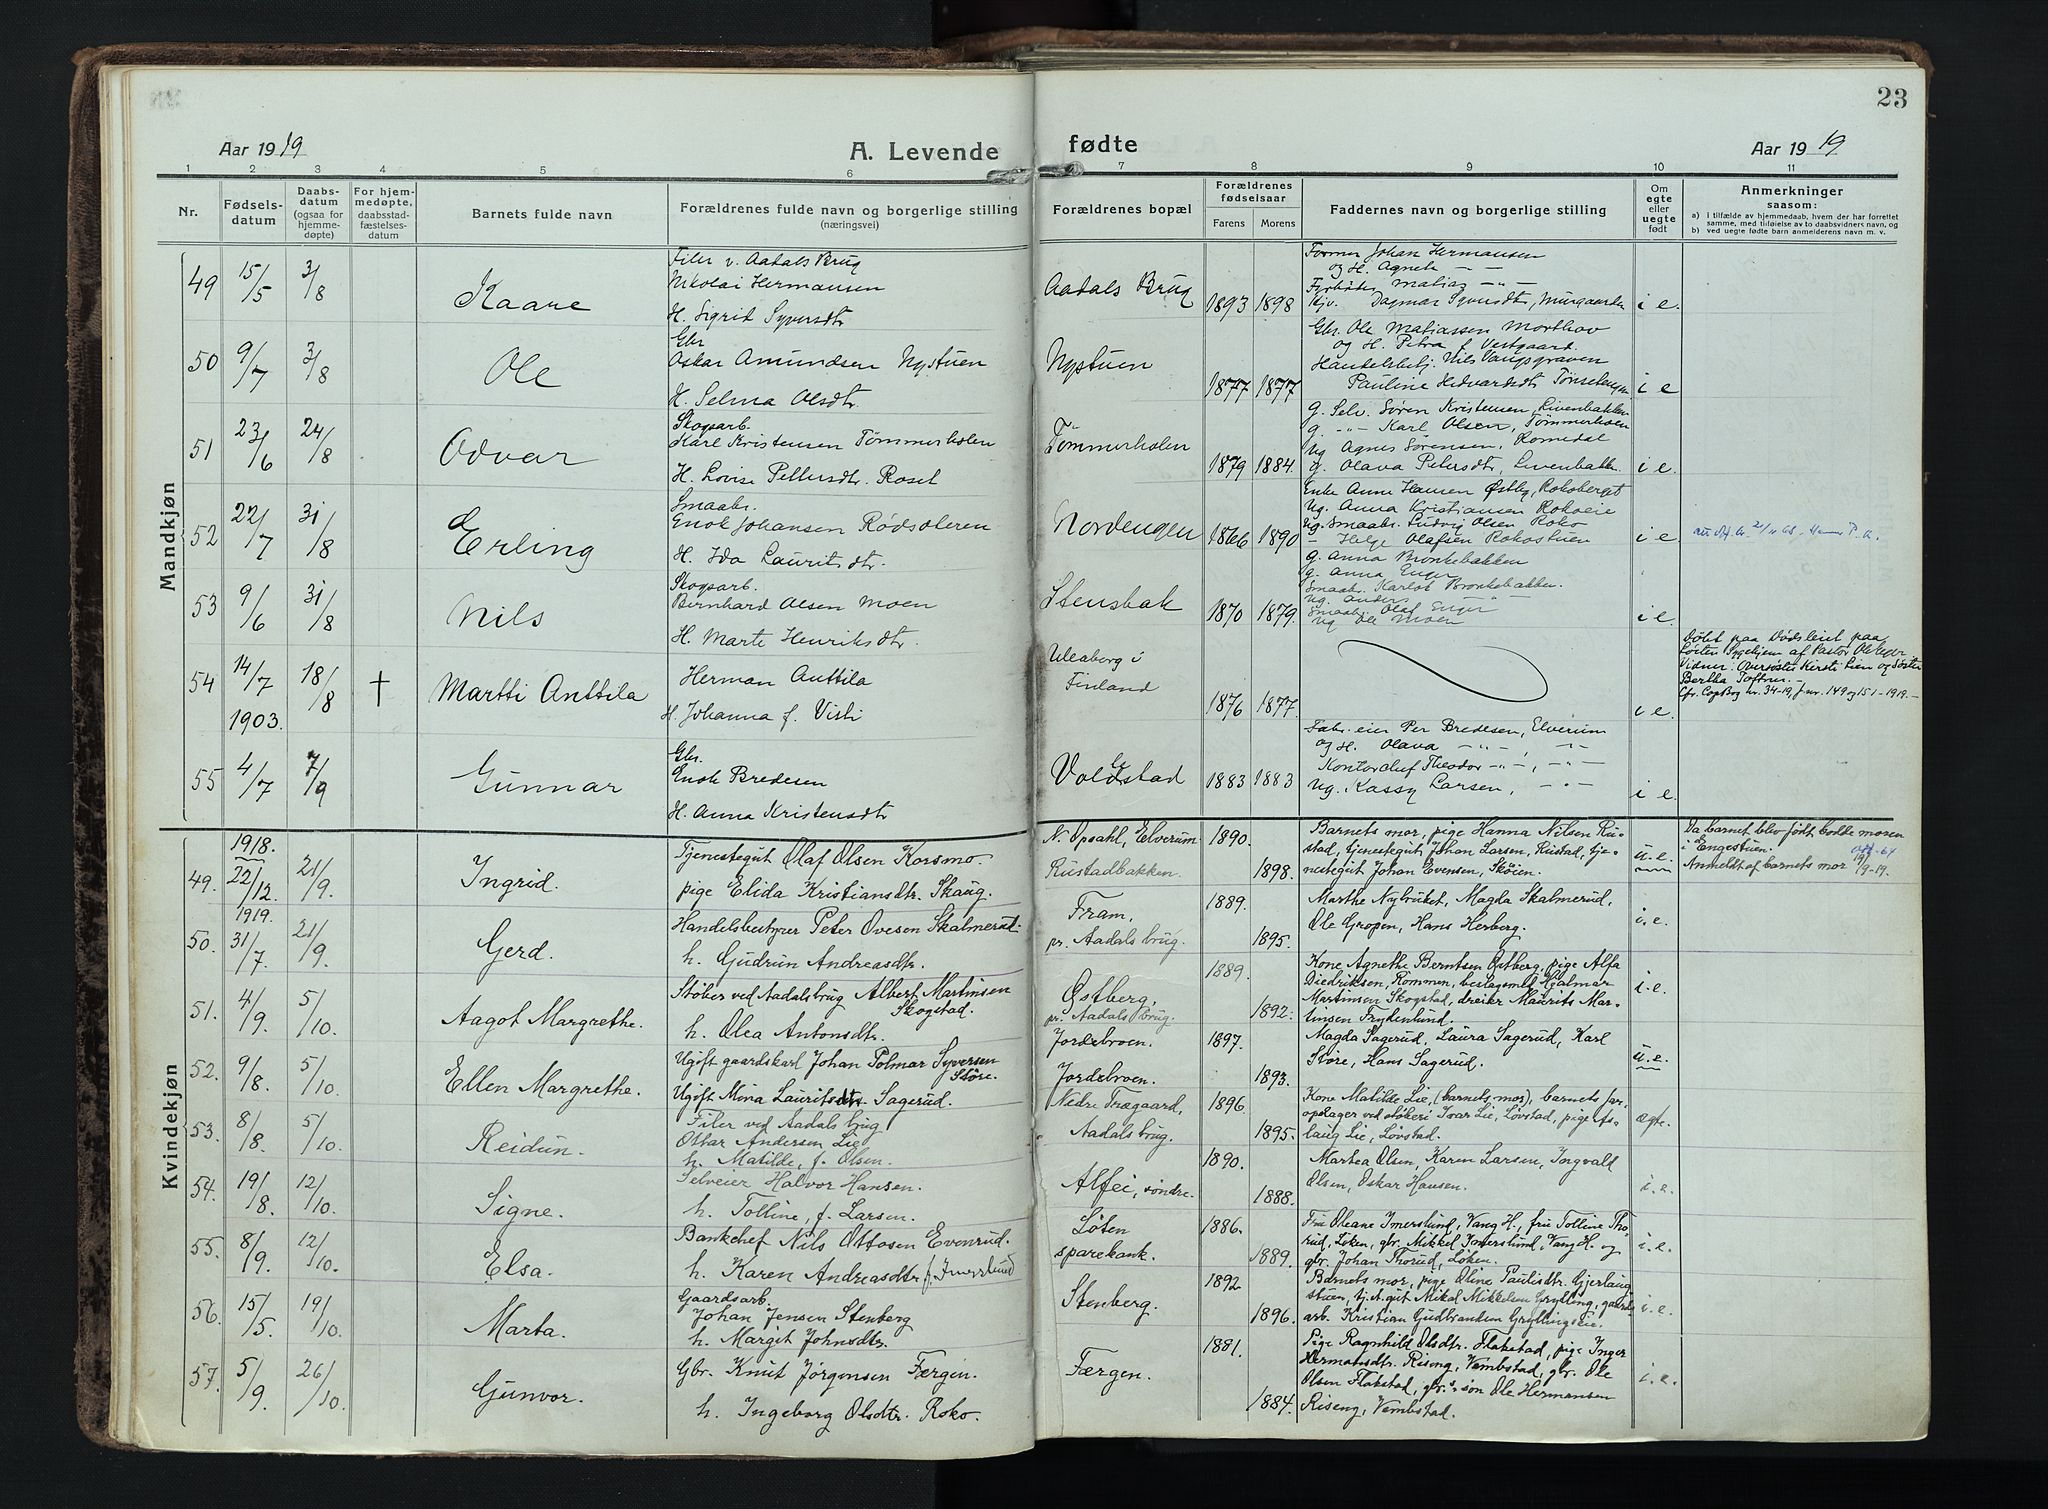 23
Aar 1919
A. Levende
fødte
Aar 1919
1 2 3 4 5 6 7 8 9 10 11
Nr.
Fødsels-
datum
Daabs-
datum
(ogsaa for
hjemme-
døpte)
For hjem-
medøpte,
daabsstad-
fæstelses-
datum
Barnets fulde navn
Forældrenes fulde navn og borgerlige stilling
(næringsvei)
Forældrenes bopæl
Forældrenes
fødselsaar
Farens Morens
Faddernes navn og borgerlige stilling
Om
egte
eller
uegte
født
Anmerkninger
saasom:
a) i tilfælde av hjemmedaab, hvem der har forrettet
samme, med tilføielse av to daabsvidners navn, og
b) ved uegte fødte barn anmelderens navn m. v.
Mandkjøn
49 15/5 3/8 Kaare
Filer v. Aadals Brug
Nikolai Hermansen
H. Sigrid Syversdtr
Aadals Brug 1893 1898
Former Johan Hermansen
og H. Agnete — —
Fyrbøter Matias — " —
Dagmar Syversdtr, Murgaarden
i e.
50 9/7 3/8 Ole
Gbr
Oskar Amundsen Nystuen
H. Selma Olsdtr.
Nystuen 1877 1877
Gbr. Ole Matiassen Morthov
og H. Petra f. Vestgaard.
Handelsbetj. Nils Vangsgraven
Pauline Hedvardsdtr Tønsetengen
i e
51 23/6 24/8 Odvar
Skogsarb.
Karl Kristensen Tømmerholen
H. Lovise Pettersdtr. Roset
Tømmerholen 1879 1884.
g. Selv. Sören Kristensen, Livenbakken
g. — " — Karl Olsen, Tømmerholen
Ug Agnes Sørensen, Romedal
g. Olava Petersdtr, Livenbakk.
i e.
52 22/7 31/8 Erling
Smaabr.
Enok Johansen Rödsoleren
H. Ida Lauritsdtr.
Nordengen 1866 1890
Enke Anne Hansen Østby, Rokoberget
Ug. Anna Kristiansen Rokoeie
Ug. Smaabr. Ludvig Olsen Roko
— Helge Olafsen Rokostuen
i e
53 9/6 31/8 Nils
Skogsarb.
Bernhard Olsen Moen
H. Marte Henriksdtr.
Stensbak 1870 1879.
g. Anna Monkebakken
g. Anna Enger
Smaab. Karlot Bronkebakken.
Ug. Anders "
Smaabr. Olaf Enger
Ug Ole Moen
i e.
54 14/7 1903. 18/8 † Martti Anttila
Herman Anttila
H. Johanna f. Visti
Uleaborg i
Finland
1876 1877.
i e.
Døbt paa Dødsleiet paa
Løten Sygehjem af Pastor Ole
Vidner: Oversøster Kirsti Lien og Søster
Bertha Toftner. —
Cfr. Copibog nr. 34-19, J nr. 149 og 151 - 1919. —
55 4/7 7/9 Gunnar
Gbr.
Enok Bredesen
H. Anna Kristensdtr
Voldstad 1883 1883
Fabr. eier Per Bredesen, Elverum
og H. Olava — " — , — " —
Kontorchef Theodor — " — , — " —
Ug. Kassy Larsen, — " —
i e.
Kvindekjøn
49. 1918. 22/12. 21/9. Ingrid.
Tjenestegut Olaf Olsen Korsmo
pige Elida Kristiansdtr. Skaug.
N. Opsahl, Elverum 1890.
Rustadbakken. 1898.
Barnets mor, pige Hanna Nilsen Ru-
stad, tjenestegut Johan Larsen, Rustad, tje-
nestegut Johan Evensen, Skøien.
u. e.
Da barnet blev født bodde moren
i Engestuen.
Anmeldt af barnets mor 19/9-19.
50. 1919. 31/7. 21/9. Gerd.
Handelsbestyrer Peter Ovesen Skalmerud.
h. Gudrun Andreasdtr.
Fram,
pr. Aadals brug.
1889. 1895.
Marthe Nybruket, Magda Skalmerud,
Ole Gropen, Hans Herberg.
i. e.
51. 4/9. 5/10. Aagot Margrethe.
Støber ved Aadalsbrug Albert Martinsen
Skogstad.
h. Olea Antonsdtr.
Østberg,
pr. Aadals brug.
1889. 1892.
Kone Agnethe Berntsen Østberg, pige Alfa
Diedriksen, Rommen, beslagsmed Hjalmar
Martinsen Skogstad, dreier Maurits Mar-
tinsen Frydenlund.
i. e.
52. 9/8. 5/10. Ellen Margrethe.
Ugift gaardskarl Johan Tolmar Syversen
Støre.
Ugift Mina Lauritsdtr. Sagerud.
Jordebroen. 1897.
Jordebroen. 1893.
Magda Sagerud, Laura Sagerud, Karl
Støre, Hans Sagerud.
u. e.
53. 8/8. 5/10. Reidun.
Filer ved Aadals brug
Ottar Andersen Lie
h. Matilde, f. Olsen.
Nedre Trægaard,
Aadals brug.
1896. 1895.
Kone Matilde Lie, (barnets mor), barnets far,
oplager ved Ivar Lie, Løvstad, pige As-
laug Lie, Løvstad.
ægte.
54. 19/8. 12/10. Signe.
Selveier Halvor Hansen.
h. Tolline, f. Larsen.
Alfei, søndre.
1890. 1888.
Martea Olsen, Karen Larsen, Ingvald
Olsen, Oskar Hansen.
i. e.
55. 8/9. 12/10. Elsa.
Bankchef Nils Ottosen Evenrud.
h. Karen Andreasdtr f. Imerslund
Løten
sparebank.
1886. 1889.
Fru Oleane Imerslund, Vang H., fru Tolline Tho-
rud, Løken, gbr. Mikkel Imerslund, Vang H. og
gbr. Johan Thorud, Løken.
i. e.
56. 15/5. 19/10. Marta.
Gaardsarb.
Johan Jensen Stenberg
h. Margit Johnsdtr.
Stenberg.
1892 1896.
Barnets mor, pige Olina Paulsdtr. Gjerlaug-
stuen, tj. gut Mikal Mikkelsen Grylling, gaards-
arb. Kristian Gudbrandsen Gryllingseie.
i. e.
57. 5/9. 26/10. Gunvor.
Gbr. Knut Jørgensen Færgen.
h. Ingeborg Olsdtr. Roko.
Færgen.
1881. 1884.
Pige Ragnhild Olsdtr. Flakstad, pige Inger
Hermansdtr. Riseng, Vembstad, gbr. Ole
Olsen Flakstad, gbr.s. søn Ole Hermansen
Riseng, Vembstad.
i. e.